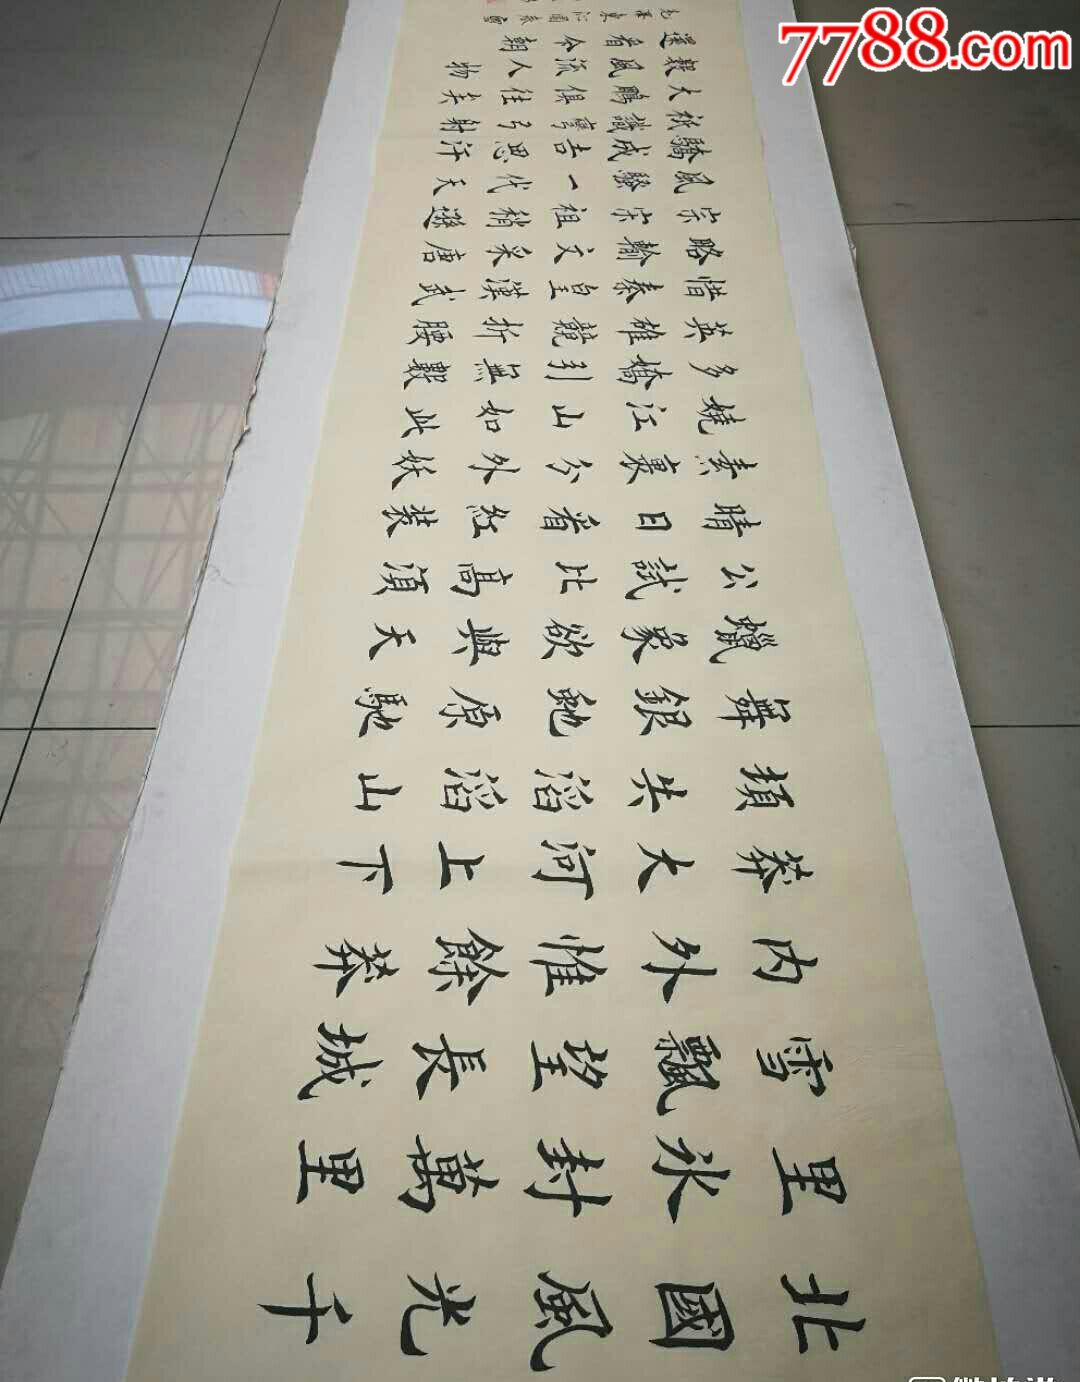 北國風光千
里冰封萬里
雪飄望長城
內外惟餘莽
莽大河上下
頓失滔滔山
舞銀蛇原馳
蠟象欲與天
公試比高須
晴日看紅裝
素裹分外妖
嬈江山如此
多嬌引無數
英雄競折腰
惜秦皇漢武
略輸文采唐
宗宋祖稍遜
風騷一代天
驕成吉思汗
祇識彎弓射
大鵰俱往矣
數風流人物
還看今朝
毛澤東沁園春雪
7788.com